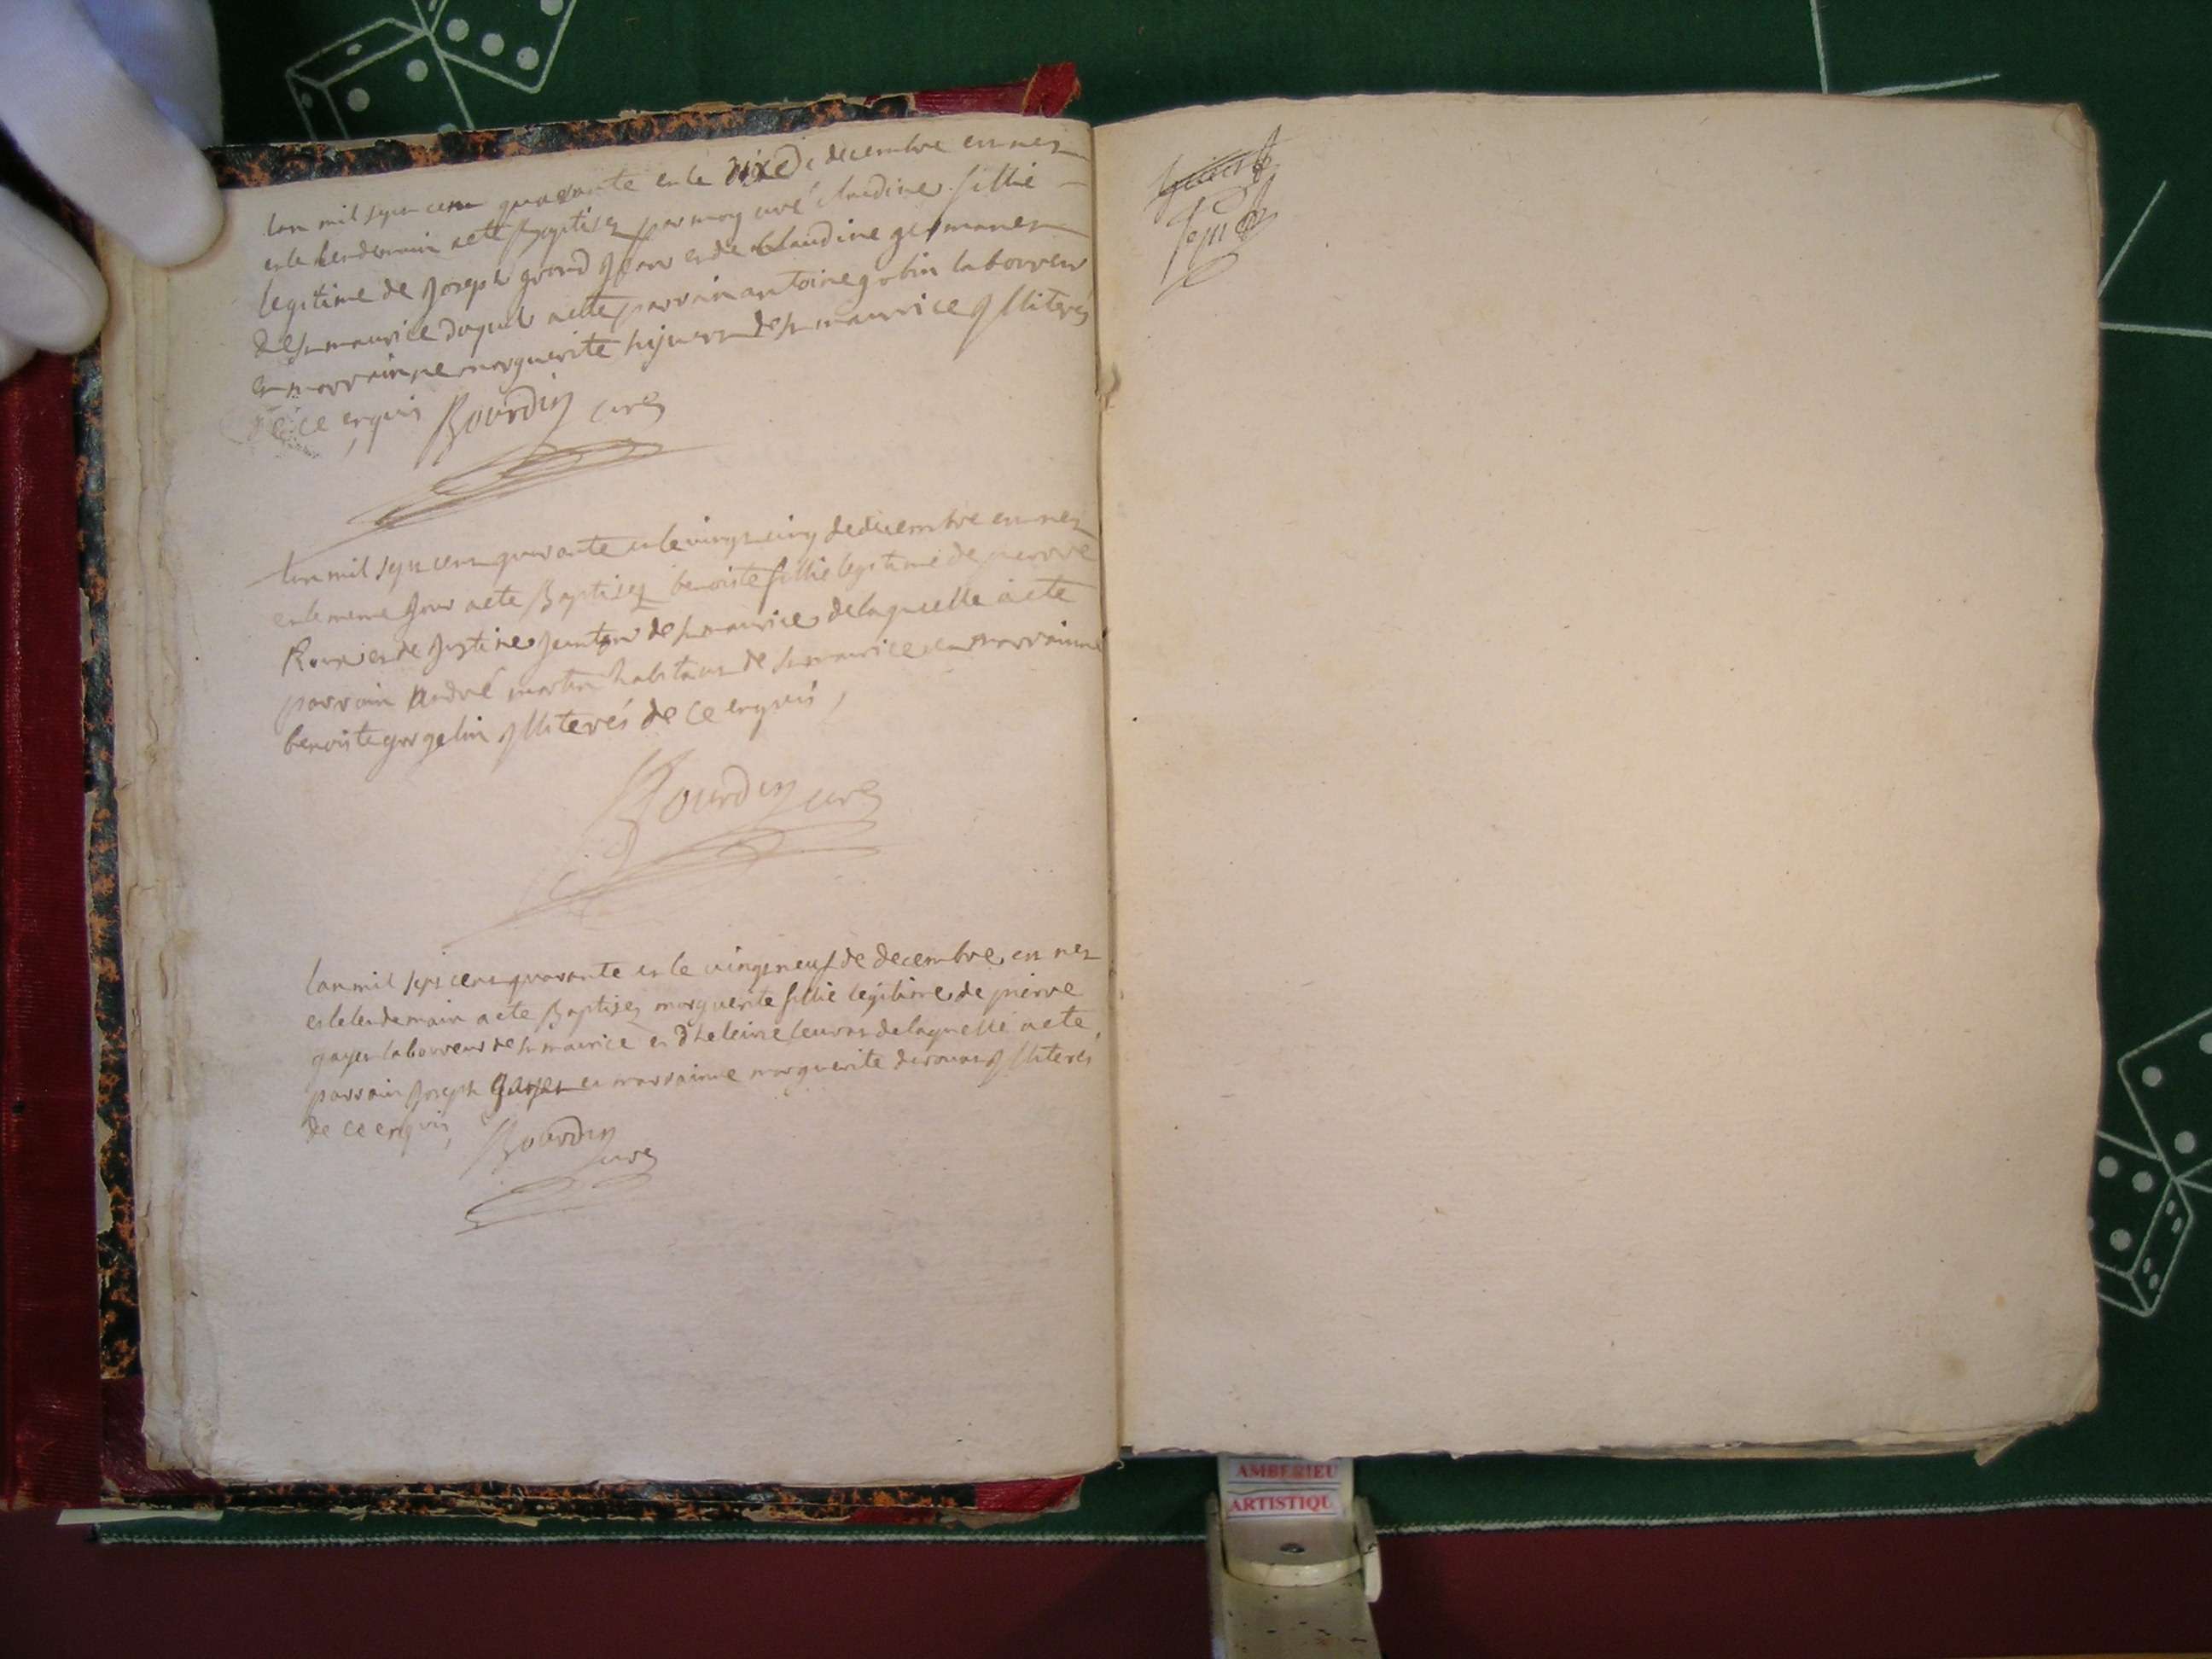 lan mil sept cent quarante en le dixe de decembre est nez
et le lendemain aeté Baptisez par moy curé claudine fillie
legitime de Joseph grand et de claudine germanet
de st maurice duquel aeté parrain antoine gobin laboureur
et marrainne marguerite de st maurice Illiterés
de ce enquis Bourdin curé
lan mil sept cent quarante et le vingt cinq de decembre est nez
et le meme Jour aeté Baptisez benoiste fillie legitime de pierre
Roux et de Justine de st maurice de laquelle aeté
parrain André martin habitant de st maurice et marrainne
benoiste gorgelin Illiterés de ce enquis,
Bourdin curé
lan mil sept cent quarante et le vingt neuf de decembre est nez
et le lendemain aeté Baptisez marguerite fillie legitime de pierre
gayet laboureur de st maurice et dheleine de laquelle aeté
parrain Joseph Gayet et marrainne marguerite Illiterés
de ce enquis, Bourdin
curé
AMBERIEU
ARTISTIQU